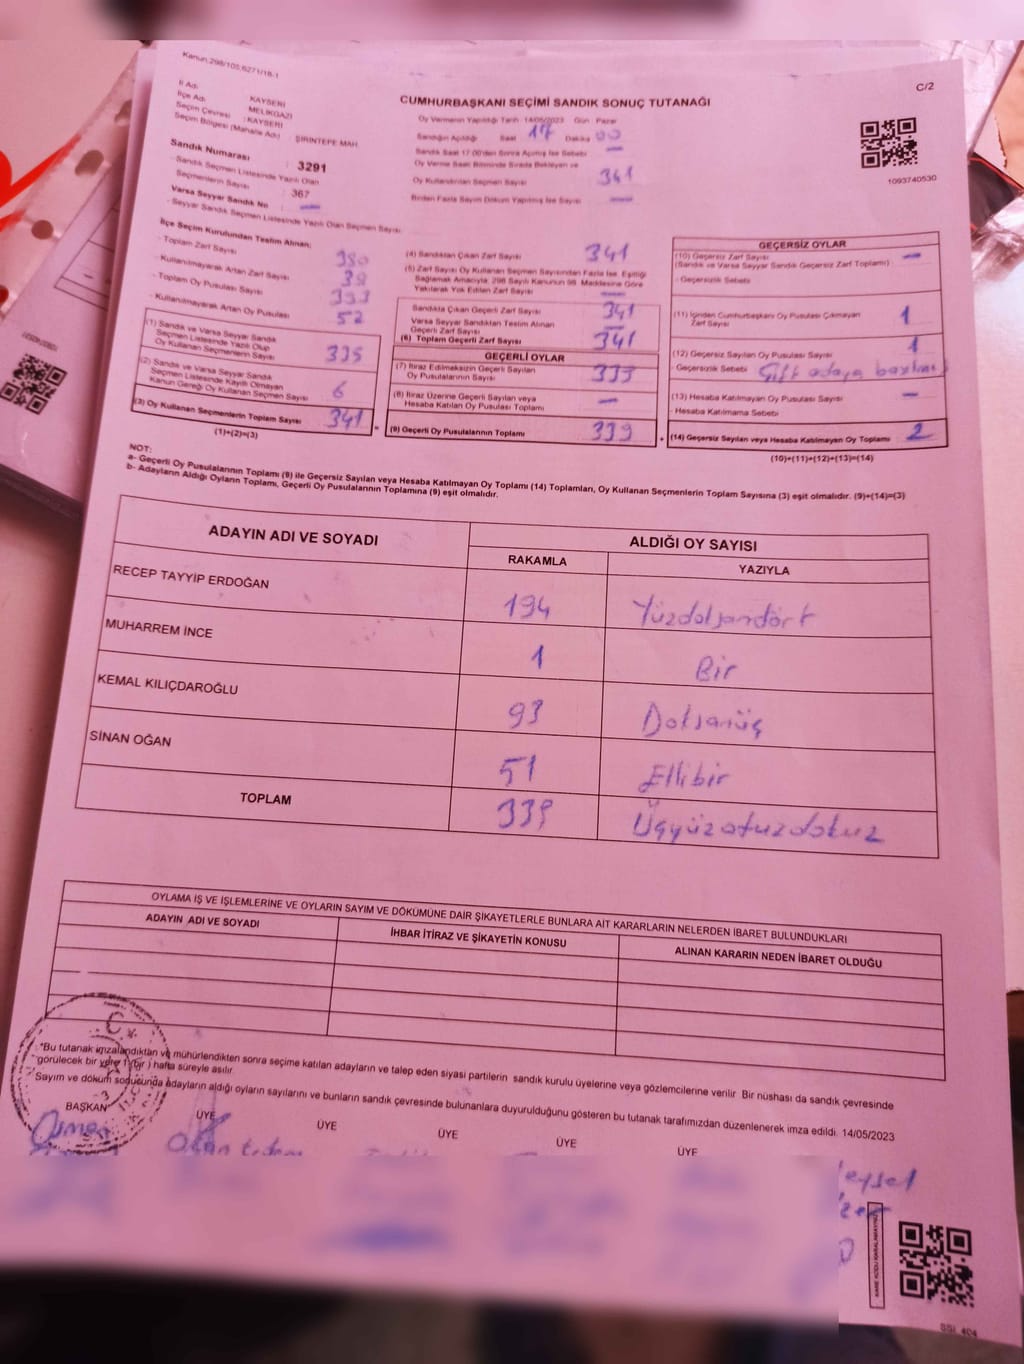 Kanun:298/105;6271/18-1
C/2
CUMHURBAŞKANI SEÇİMİ SANDIK SONUÇ TUTANAĞI
İl Adı : KAYSERİ
İlçe Adı : MELİKGAZİ
Seçim Çevresi : KAYSERİ
Seçim Bölgesi (Mahalle Adı) : ŞİRİNTEPE MAH.
Sandık Numarası : 3291
- Sandık Seçmen Listesinde Yazılı Olan Seçmenlerin Sayısı : 367
Varsa Seyyar Sandık No : —
- Seyyar Sandık Seçmen Listesinde Yazılı Olan Seçmen Sayısı
Oy Vermenin Yapıldığı Tarih 14/05/2023 Gün Pazar
Sandığın Açıldığı Saat 17 Dakika 00
Sandık Saat 17:00'den Sonra Açılmış İse Sebebi —
Oy Verme Saati Bitiminde Sırada Bekleyen ve
Oy Kullandırılan Seçmen Sayısı 341
Birden Fazla Sayım Döküm Yapılmış İse Sayısı —
1093740530
İlçe Seçim Kurulundan Teslim Alınan;
- Toplam Zarf Sayısı 380
- Kullanılmayarak Artan Zarf Sayısı 39
- Toplam Oy Pusulası Sayısı
- Kullanılmayarak Artan Oy Pusulası 52
(1) Sandık ve Varsa Seyyar Sandık
Seçmen Listesinde Yazılı Olup
Oy Kullanan Seçmenlerin Sayısı 335
(2) Sandık ve Varsa Seyyar Sandık
Seçmen Listesinde Kayıtlı Olmayan
Kanun Gereği Oy Kullanan Seçmen Sayısı 6
(3) Oy Kullanan Seçmenlerin Toplam Sayısı 341
(1)+(2)=(3)
(4) Sandıktan Çıkan Zarf Sayısı 341
(5) Zarf Sayısı Oy Kullanan Seçmen Sayısından Fazla İse, Eşitliği
Sağlamak Amacıyla; 298 Sayılı Kanunun 98. Maddesine Göre
Yakılarak Yok Edilen Zarf Sayısı —
Sandıkta Çıkan Geçerli Zarf Sayısı 341
Varsa Seyyar Sandıktan Teslim Alınan
Geçerli Zarf Sayısı —
(6) Toplam Geçerli Zarf Sayısı 341
GEÇERLİ OYLAR
(7) İtiraz Edilmeksizin Geçerli Sayılan
Oy Pusulalarının Sayısı 339
(8) İtiraz Üzerine Geçerli Sayılan veya
Hesaba Katılan Oy Pusulası Toplamı —
(9) Geçerli Oy Pusulalarının Toplamı 339
GEÇERSİZ OYLAR
(10) Geçersiz Zarf Sayısı —
(Sandık ve Varsa Seyyar Sandık Geçersiz Zarf Toplamı)
- Geçersizlik Sebebi
(11) İçinden Cumhurbaşkanı Oy Pusulası Çıkmayan
Zarf Sayısı 1
(12) Geçersiz Sayılan Oy Pusulası Sayısı 1
- Geçersizlik Sebebi Çift adaya basılması
(13) Hesaba Katılmayan Oy Pusulası Sayısı —
- Hesaba Katılmama Sebebi
(14) Geçersiz Sayılan veya Hesaba Katılmayan Oy Toplamı 2
(10)+(11)+(12)+(13)=(14)
NOT:
a- Geçerli Oy Pusulalarının Toplamı (9) ile Geçersiz Sayılan veya Hesaba Katılmayan Oy Toplamı (14) Toplamları, Oy Kullanan Seçmenlerin Toplam Sayısına (3) eşit olmalıdır. (9)+(14)=(3)
b- Adayların Aldığı Oyların Toplamı, Geçerli Oy Pusulalarının Toplamına (9) eşit olmalıdır.
ADAYIN ADI VE SOYADI ALDIĞI OY SAYISI
RAKAMLA YAZIYLA
RECEP TAYYİP ERDOĞAN 194 Yüzdoksandört
MUHARREM İNCE 1 Bir
KEMAL KILIÇDAROĞLU 93 Doksanüç
SİNAN OĞAN 51 Ellibir
TOPLAM 339 Üçyüzotuzdokuz
OYLAMA İŞ VE İŞLEMLERİNE VE OYLARIN SAYIM VE DÖKÜMÜNE DAİR ŞİKAYETLERLE BUNLARA AİT KARARLARIN NELERDEN İBARET BULUNDUKLARI
ADAYIN ADI VE SOYADI İHBAR İTİRAZ VE ŞİKAYETİN KONUSU ALINAN KARARIN NEDEN İBARET OLDUĞU
*Bu tutanak imzalandıktan ve mühürlendikten sonra seçime katılan adayların ve talep eden siyasi partilerin sandık kurulu üyelerine veya gözlemcilerine verilir. Bir nüshası da sandık çevresinde
görülecek bir yere 1 (bir ) hafta süreyle asılır.
Sayım ve döküm sonucunda adayların aldığı oyların sayılarını ve bunların sandık çevresinde bulunanlara duyurulduğunu gösteren bu tutanak tarafımızdan düzenlenerek imza edildi. 14/05/2023
BAŞKAN ÜYE ÜYE ÜYE ÜYE ÜYE
Osman Okan
KARE KODU KARALAMAYINIZ